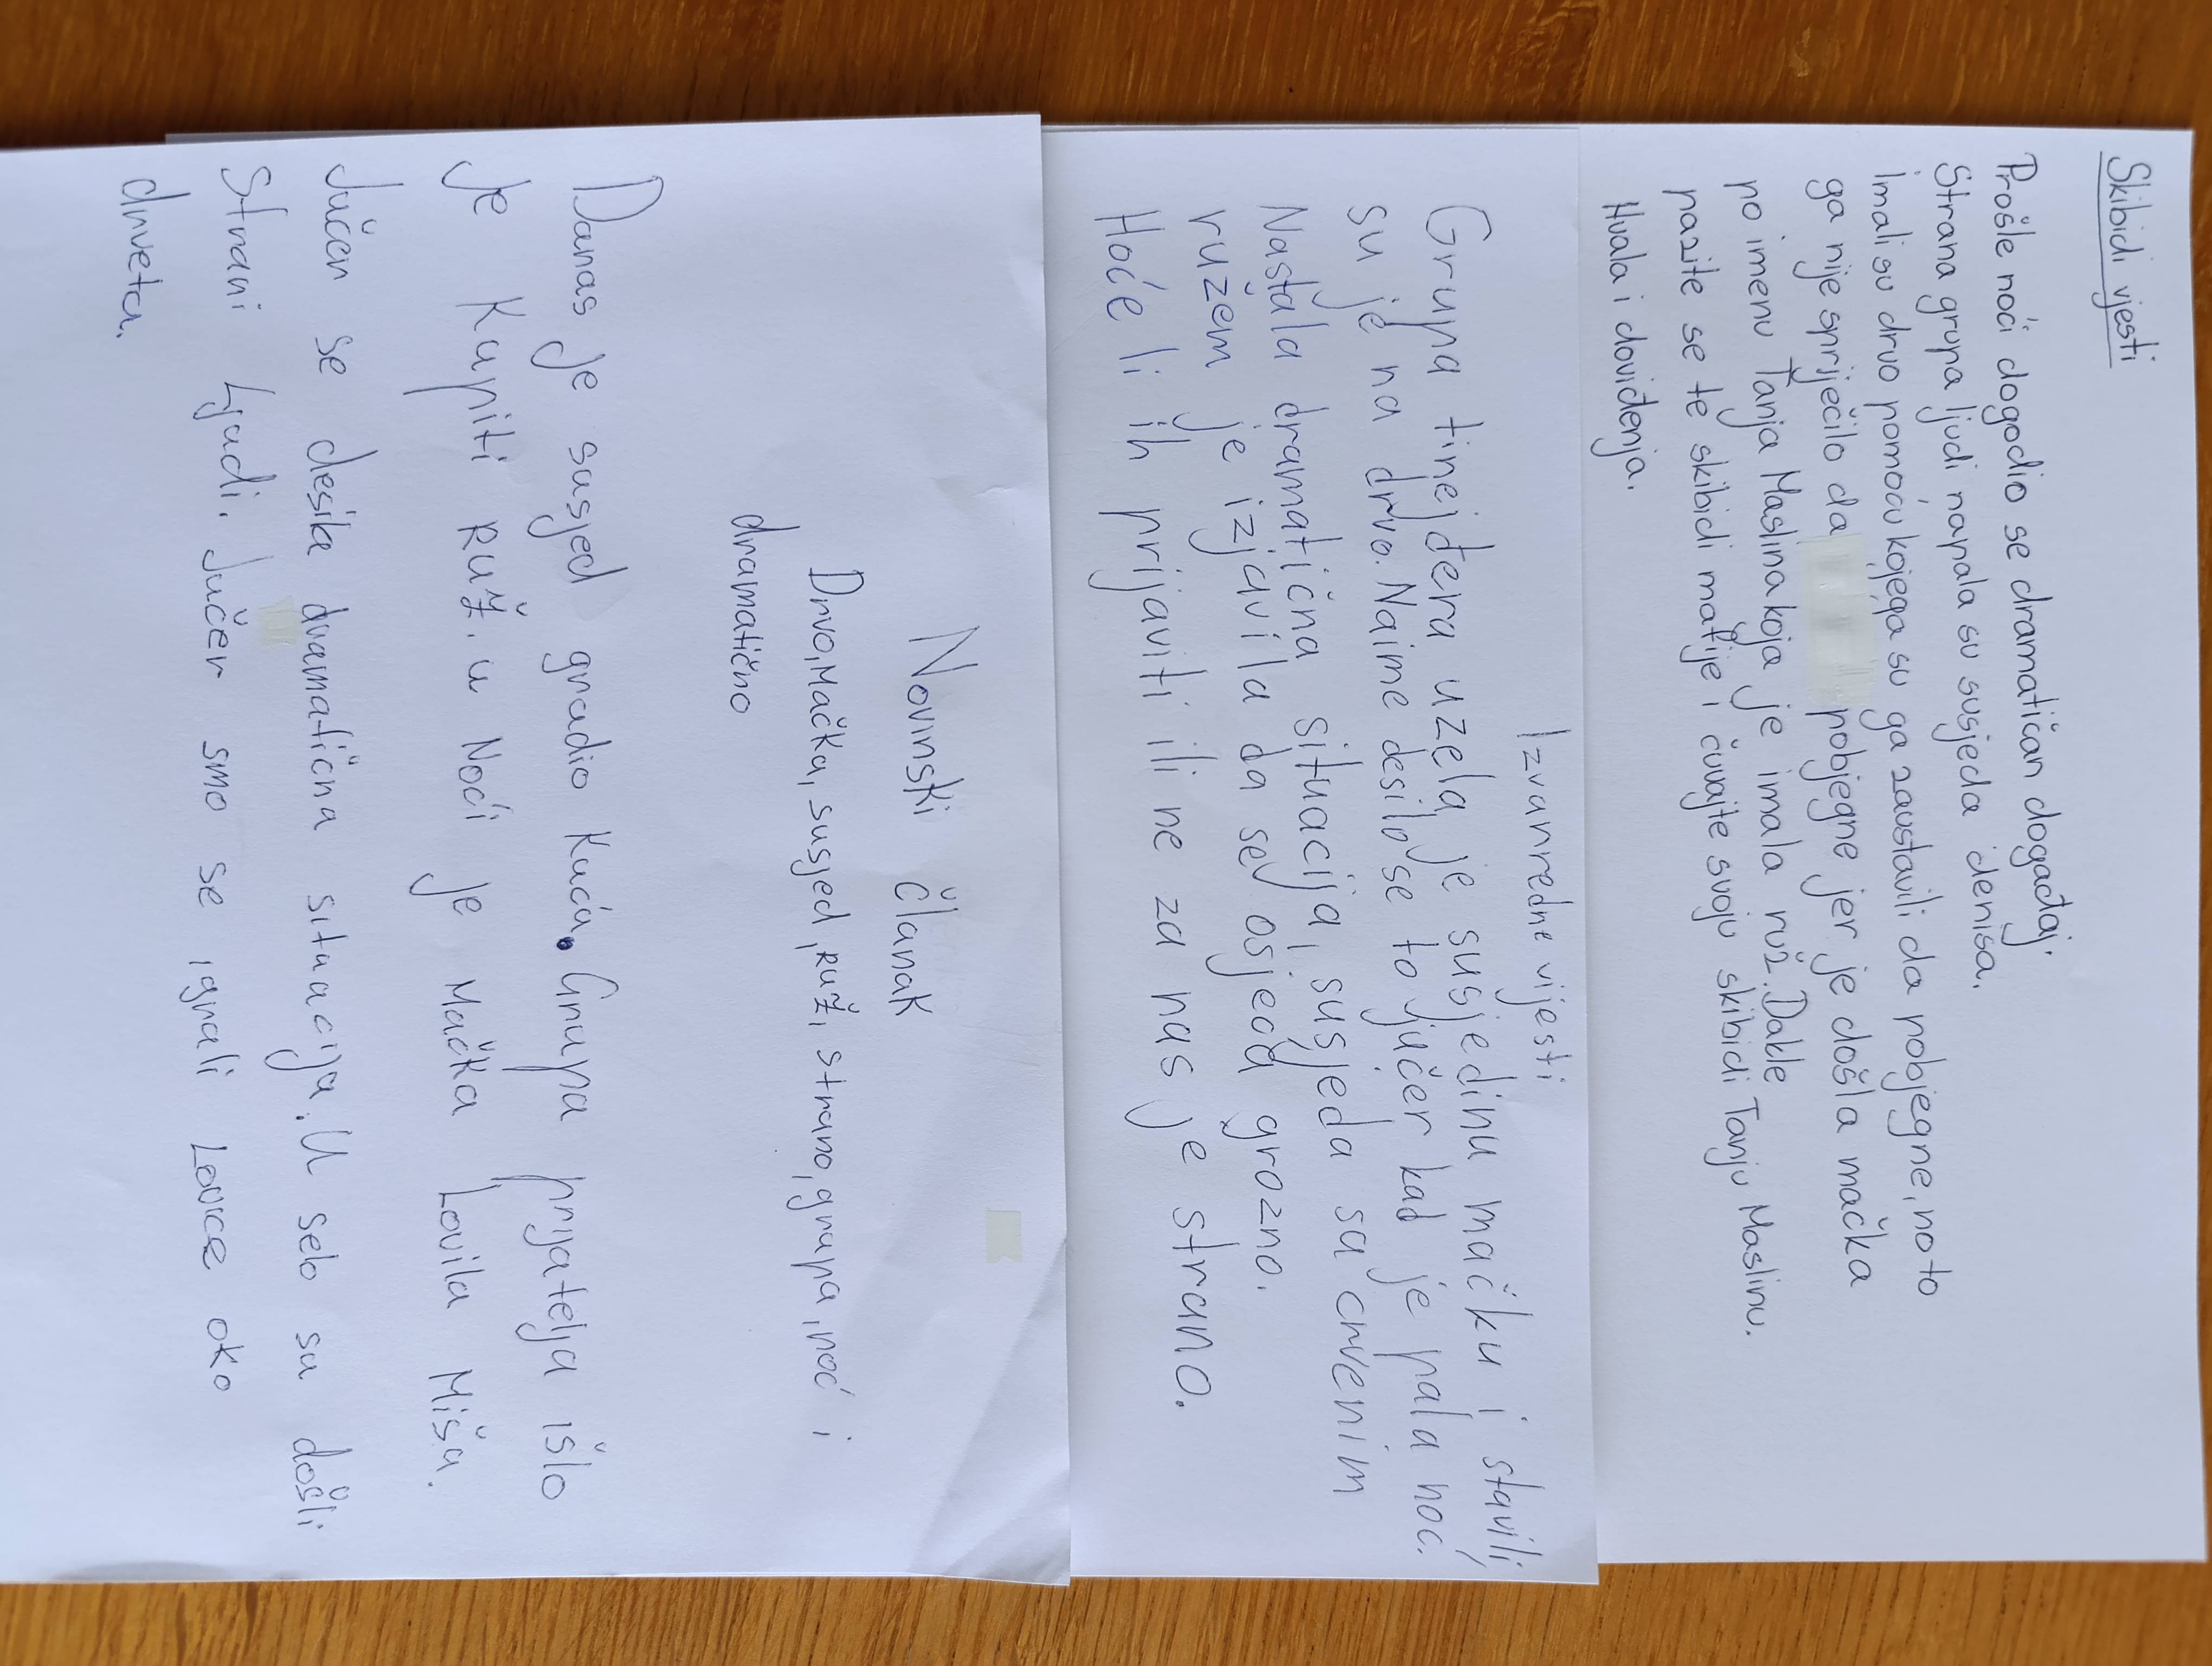 Skibidi vjesti
Prošle noći dogodio se dramatičan događaj.
Strana grupa ljudi napala su susjeda denisa.
Imali su drvo pomoću kojega su ga zaustavili da pobjegne, no to
ga nije spriječilo da pobjegne jer je došla mačka
po imenu Tanja Maslina koja je imala ruž. Dakle
pazite se te skibidi matije i čuvajte svoju skibidi Tanju Maslinu.
Hvala i doviđenja.
Izvanredne vijesti
Grupa tinejđera uzela je susjedinu mačku i stavili
su je na drvo. Naime desilo se to jučer kad je pala noć.
Nastala dramatična situacija, susjeda sa crvenim
ružem je izjavila da se osjeća grozno.
Hoće li ih prijaviti ili ne za nas je strano.
Novinski članak
Drvo, Mačka, susjed, ruž, strano, grupa, noć i
dramatično
Danas je susjed gradio Kuću. Grupa prijatelja išlo
Je Kupiti RUŽ. u Noći je Mačka Lovila Miša.
Jučer se desila dramatična situacija. U selo su došli
Strani Ljudi. Jučer smo se igrali Lovice oko
drveta.